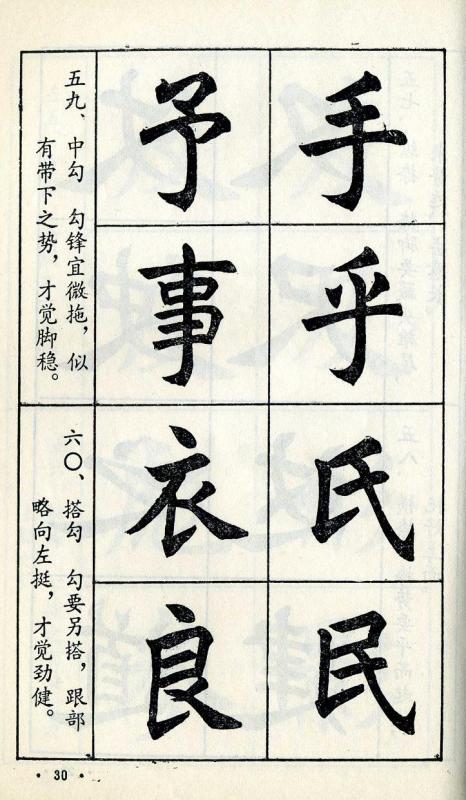 手
乎
氏
民
予
事
衣
良
五九、中勾 勾锋宜微拖，似
有带下之势，才觉脚稳。
六〇、搭勾 勾要另搭，跟部
略向左挺，才觉劲健。
·30·